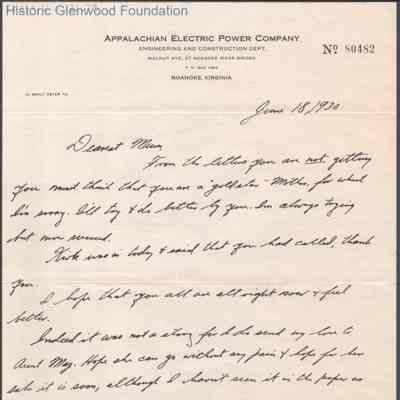 Historic Glenwood Foundation
APPALACHIAN ELECTRIC POWER COMPANY
ENGINEERING AND CONSTRUCTION DEPT.
WALNUT AVE. AT ROANOKE RIVER BRIDGE
ROANOKE, VIRGINIA
Nº 80482
IN REPLY REFER TO
June 18/1930
Dearest Mum
From the letters you are not getting
you must think that you are a "gold star" Mother, for which
I'm sorry. I'll try & do better by you. Im always trying
but never succeed.
was in today & said that you had called, thank
you.
I hope that you all are all right now & feel
better.
Indeed it was not a story for I do send my love to
Aunt May. Hope she can go without any pain & hope for her
sake it is soon, although I haven't seen it in the paper as